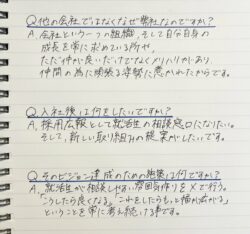 Q.他の会社ではなくなぜ弊社なのですか？
A.会社というーつの組織、そして自分自身の
成長を常に求めている所や、
ただ仲が良いだけでなくメリハリがあり、
仲間の為に頑張る姿勢に惹かれたからです。
Q.入社後は何をしたいですか？
A.採用広報として就活生の相談窓口になりたい。
そして、新しい取り組みの提案がしたいです。
Q.そのビジョン達成のための施策は何ですか？
A.就活生が相談しやすい雰囲気作りをXで行う。
「こうしたら良くなる。」「これをしたらもっと幅が広がる」
ということを常に考え続ける事です。